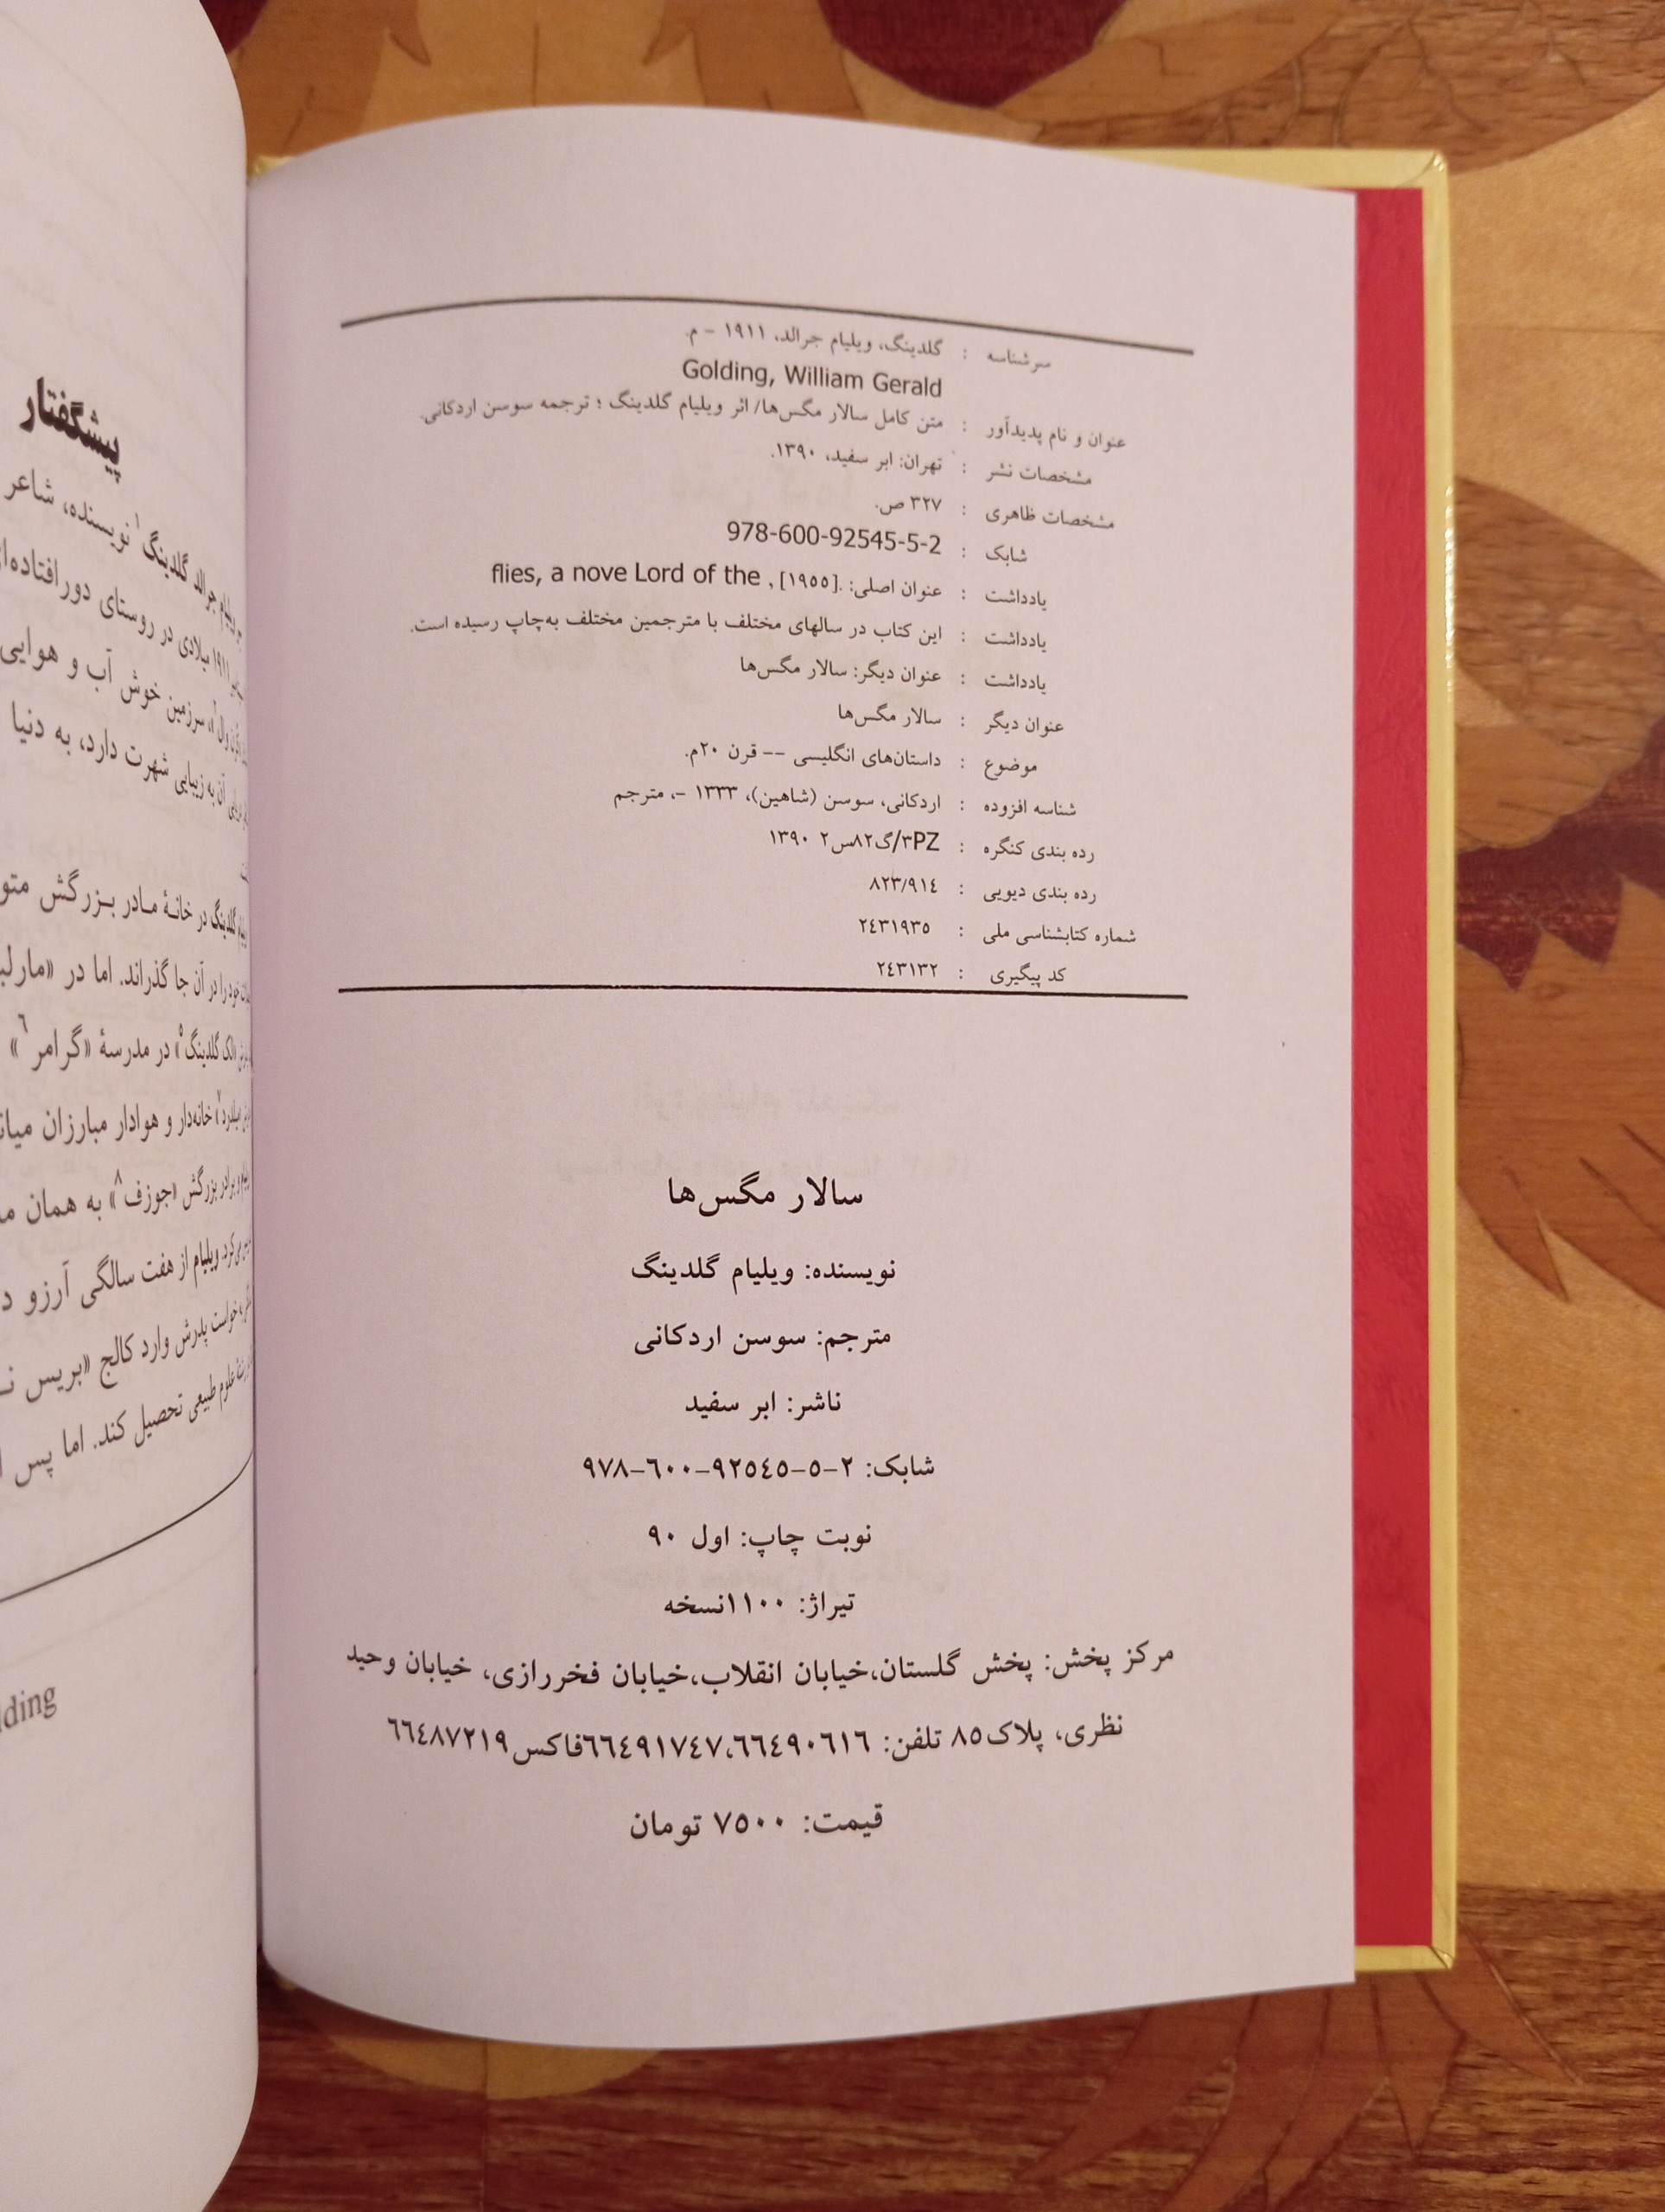 سرشناسه : گلدینگ، ویلیام جرالد، ۱۹۱۱ - م.
Golding, William Gerald
عنوان و نام پدیدآور : متن کامل سالار مگس‌ها/ اثر ویلیام گلدینگ ؛ ترجمه سوسن اردکانی.
مشخصات نشر : تهران: ابر سفید، ۱۳۹۰.
مشخصات ظاهری : ۳۲۷ ص.
شابک : 978-600-92545-5-2
یادداشت : عنوان اصلی: .[۱۹۵۵] , flies, a nove Lord of the
یادداشت : این کتاب در سالهای مختلف با مترجمین مختلف به‌چاپ رسیده است.
یادداشت : عنوان دیگر: سالار مگس‌ها
عنوان دیگر : سالار مگس‌ها
موضوع : داستان‌های انگلیسی -- قرن ۲۰م.
شناسه افزوده : اردکانی، سوسن (شاهین)، ۱۳۳۳ -، مترجم
رده بندی کنگره : ۳PZ/گ۸۲س۲ ۱۳۹۰
رده بندی دیویی : ۸۲۳/۹۱٤
شماره کتابشناسی ملی : ۲٤۳۱۹۳۵
کد پیگیری : ۲٤۳۱۳۲
سالار مگس‌ها
نویسنده: ویلیام گلدینگ
مترجم: سوسن اردکانی
ناشر: ابر سفید
شابک: ۲-۵-۹۲۵٤۵-۶۰۰-۹۷۸
نوبت چاپ: اول ۹۰
تیراژ: ۱۱۰۰نسخه
مرکز پخش: پخش گلستان،خیابان انقلاب،خیابان فخررازی، خیابان وحید
نظری، پلاک۸۵ تلفن: ۶۶٤۹۰۶۱۶،۶۶٤۹۱۷٤۷فاکس۶۶٤۸۷۲۱۹
قیمت: ۷۵۰۰ تومان
پیشگفتار
جرالد گلدینگ۱ نویسنده، شاعر
۱۹۱۱ میلادی در روستای دورافتاده‌ا
سرزمین خوش آب و هوایی
آن به زیبایی شهرت دارد، به دنیا
گلدینگ در خانهٔ مادر بزرگش
خود را در آن جا گذراند. اما در «مارلب
گلدینگ۵» در مدرسهٔ «گرامر۶»
خانه‌دار و هوادار مبارزان
برادر بزرگش «جوزف۸» به همان
ویلیام از هفت سالگی آرزو
خواست پدرش وارد کالج «بریس
علوم طبیعی تحصیل کند. اما پس
lding